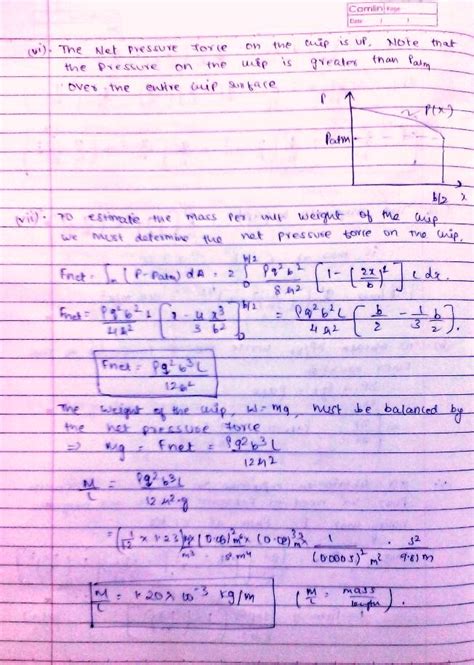 Camlin Page
Date / /
(vi). The Net pressure force on the chip is up. Note that
the pressure on the chip is greater than Patm
over the entire chip surface
P
P(x)
Patm
b/2 x
(vii). To estimate the mass per unit weight of the chip
we must determine the net pressure force on the chip.
Fnet = ∫ (P-Patm) dA = 2 ∫₀^(b/2) ρq²b²/8h² [1 - (2x/b)²] L dx.
Fnet = ρq²b²L/4h² [x - 4/3 x³/b²]₀^(b/2) = ρq²b²L/4h² [b/2 - 1/3 b/2].
Fnet = ρq²b³L/12h²
The weight of the chip, W = mg, must be balanced by
the net pressure force
⇒ mg = Fnet = ρq²b³L/12h²
M/L = ρq²b³L/12h²g
= (1/12 × 1.23) kg/m³ × (0.06)² m²/s² m⁴ × (0.02)³ m³ 1/(0.0005)² m² . s²/9.81 m
M/L = 1.20 × 10⁻³ kg/m (M/L = mass/length).